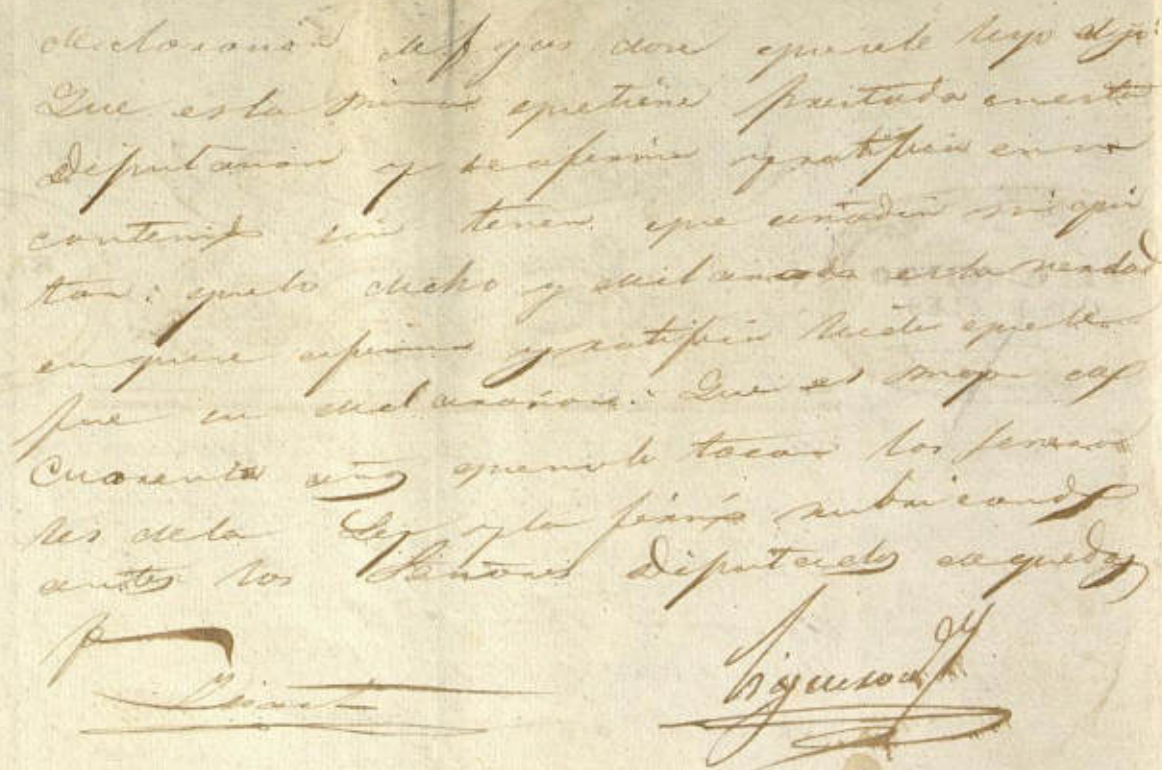 declaracion de f. que se le leyo dijo:
Que es la misma que tiene prestada en esta
Diputacion y se afirma y ratifica en su
contenido sin tener que añadir ni qui
tar: que lo dicho y declarado es la verdad
en que se afirma y ratifica leida que le
fue su declaracion: Que es mayor de
cuarenta años que no le tocan las genera
les de la Ley y la firmó rubricando
antes los Señores Diputados de que doy
fe
Figueroa